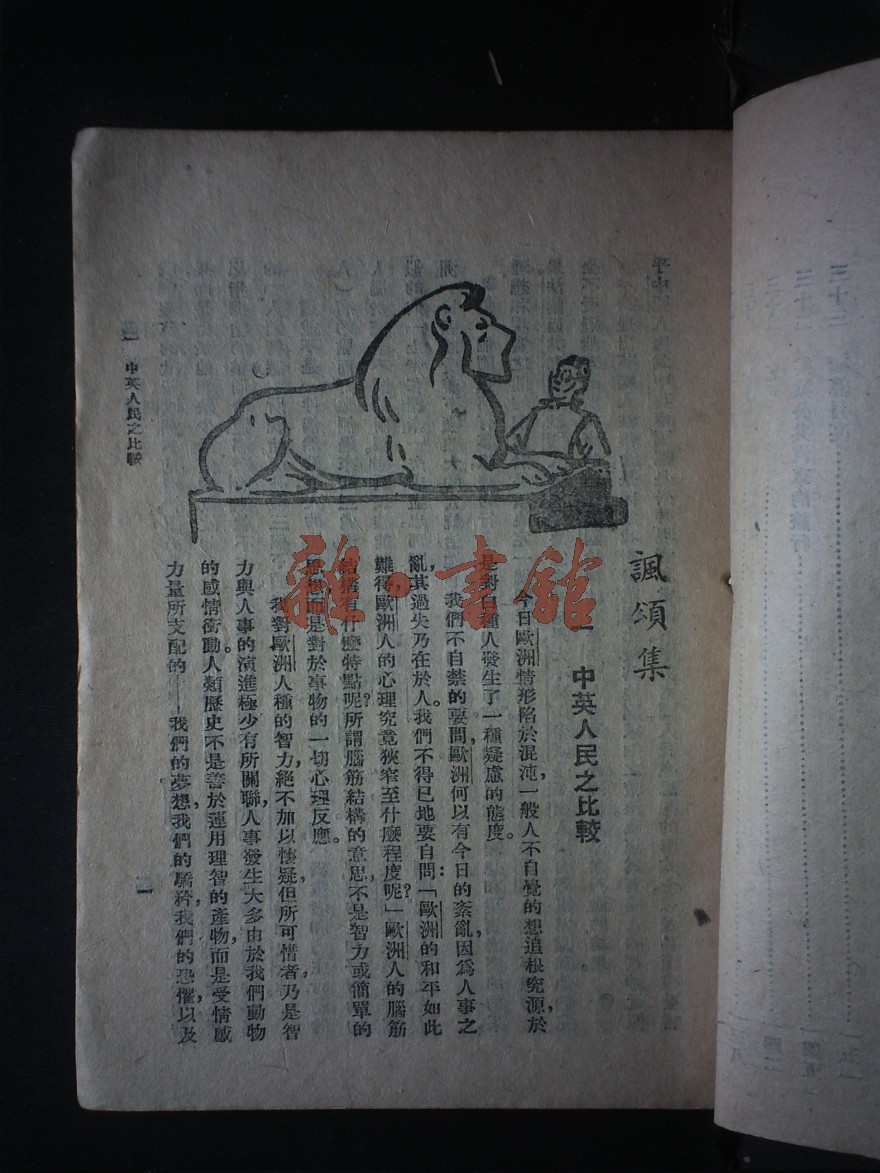 諷頌集
一　中英人民之比較
今日歐洲情形陷於混沌，一般人不自覺的想追根究源，於
是對白種人發生了一種疑慮的態度。
我們不自禁的要問，歐洲何以有今日的紊亂，因為人事之
亂，其過失乃在於人。我們不得已地要自問：「歐洲的和平如此
難得，歐洲人的心理究竟狹窄至什麼程度呢？」歐洲人的腦筋
結構有什麼特點呢？所謂腦筋結構的意思，不是智力或簡單的
思想，而是對於事物的一切心理反應。
我對歐洲人種的智力，絕不加以懷疑，但所可惜者，乃是智
力與人事的演進極少有所關聯，人事發生大多由於我們動物
的感情衝動。人類歷史不是善於運用理智的產物，而是受情感
力量所支配的——我們的夢想，我們的驕矜，我們的恐懼，以及
中英人民之比較
一
雜·書館
三十二
三十一